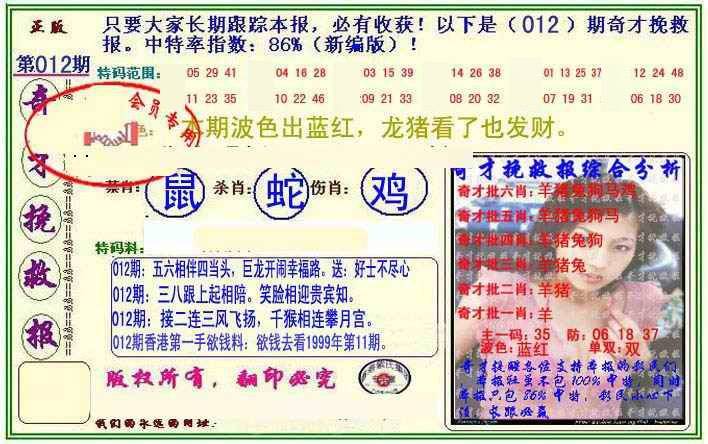 正版
只要大家长期跟踪本报，必有收获！以下是（012）期奇才挽救
报。中特率指数：86%（新编版）！
第012期
奇才挽救报
特码范围：
05 29 41 04 16 28 03 15 39 14 26 38 01 13 25 37 12 24 48
11 23 35 10 22 46 09 21 33 08 20 32 07 19 31 06 18 30
会员专用
色：本期波色出蓝红，龙猪看了也发财。
禁肖：鼠 杀肖：蛇 伤肖：鸡
特码料：
012期：五六相伴四当头，巨龙开闹幸福路。送：好士不尽心
012期：三八跟上起相陪。笑脸相迎贵宾知。
012期：接二连三风飞扬，千猴相连攀月宫。
012期香港第一手欲钱料：欲钱去看1999年第11期。
版权所有，翻印必究
我们的永远的网址：
奇才挽救报综合分析
奇才批六肖：羊猪兔狗马鸡
奇才批五肖：羊猪兔狗马
奇才批四肖：羊猪兔狗
奇才批三肖：羊猪兔
奇才批二肖：羊猪
奇才批一肖：羊
主一码：35 防：06 18 37
波色：蓝红 单双：双
奇才提醒各位支持本报的彩民们
本报租虽不包100%中特，同时
本报只包86%中特，彩民小心下
注，求跟必赢